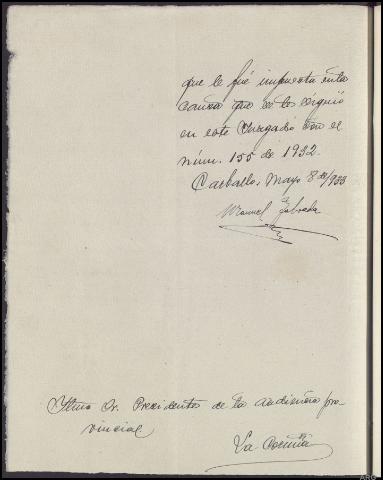 que le fué impuesta en la
causa que se les siguió
en este Juzgado con el
núm. 155 de 1932.
Carballo, Mayo 8 de/933
Manuel
Iltmo Sr. Presidente de la Audiencia pro-
vincial
La Coruña